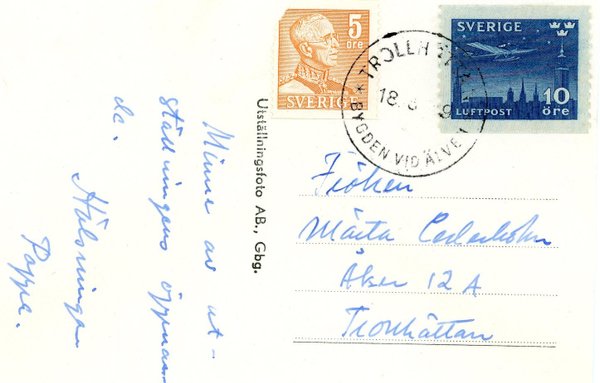 5
öre
SVERIGE
SVERIGE
10
LUFTPOST öre
TROLLH
18.
BYGDEN VID ÄLVEN
Utställningsfoto AB., Gbg.
Minne av ut-
ställningens öppnan-
da.
Hälsningar
Pappa.
Fröken
Märta Cederholm
Åker 12 A
Trollhättan